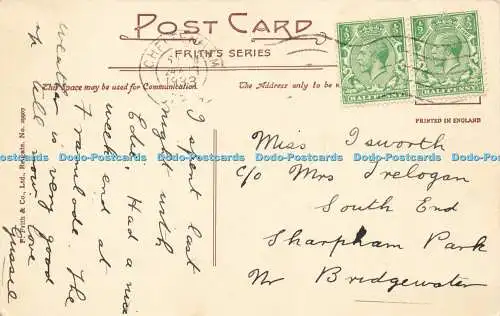 POST CARD
FRITH'S SERIES
This Space may be used for Communication.
The Address only to be
HALFPENNY
HALFPENNY
PRINTED IN ENGLAND
1933
I spent last
night with
Edie. Had a nice
week end at
Framilode. The
weather is very good
up till now.
love
Gussie
Miss Isworth
c/o Mrs Trelogan
South End
Sharpham Park
Nr Bridgewater
F. Frith & Co., Ltd., Reigate. No.
Dodo-Postcards Dodo-Postcards Dodo-Postcards Dodo-Postcards Dodo-Postcards Dodo-Postcards